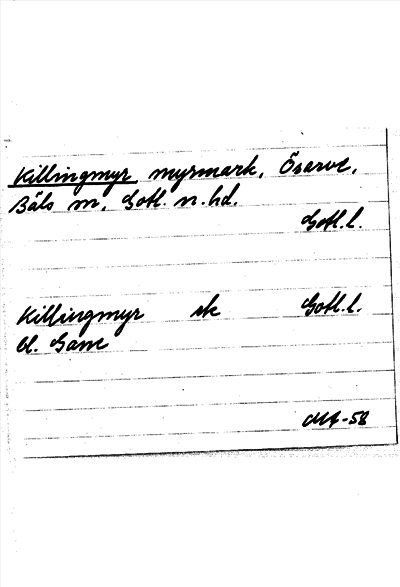 Killingmyr, myrmark, Öserve,
Bäls sn, Gotl. n. hd.
Gotl. l.
Killingmyr sk Gotl. l.
Bl. Gane
MA-58